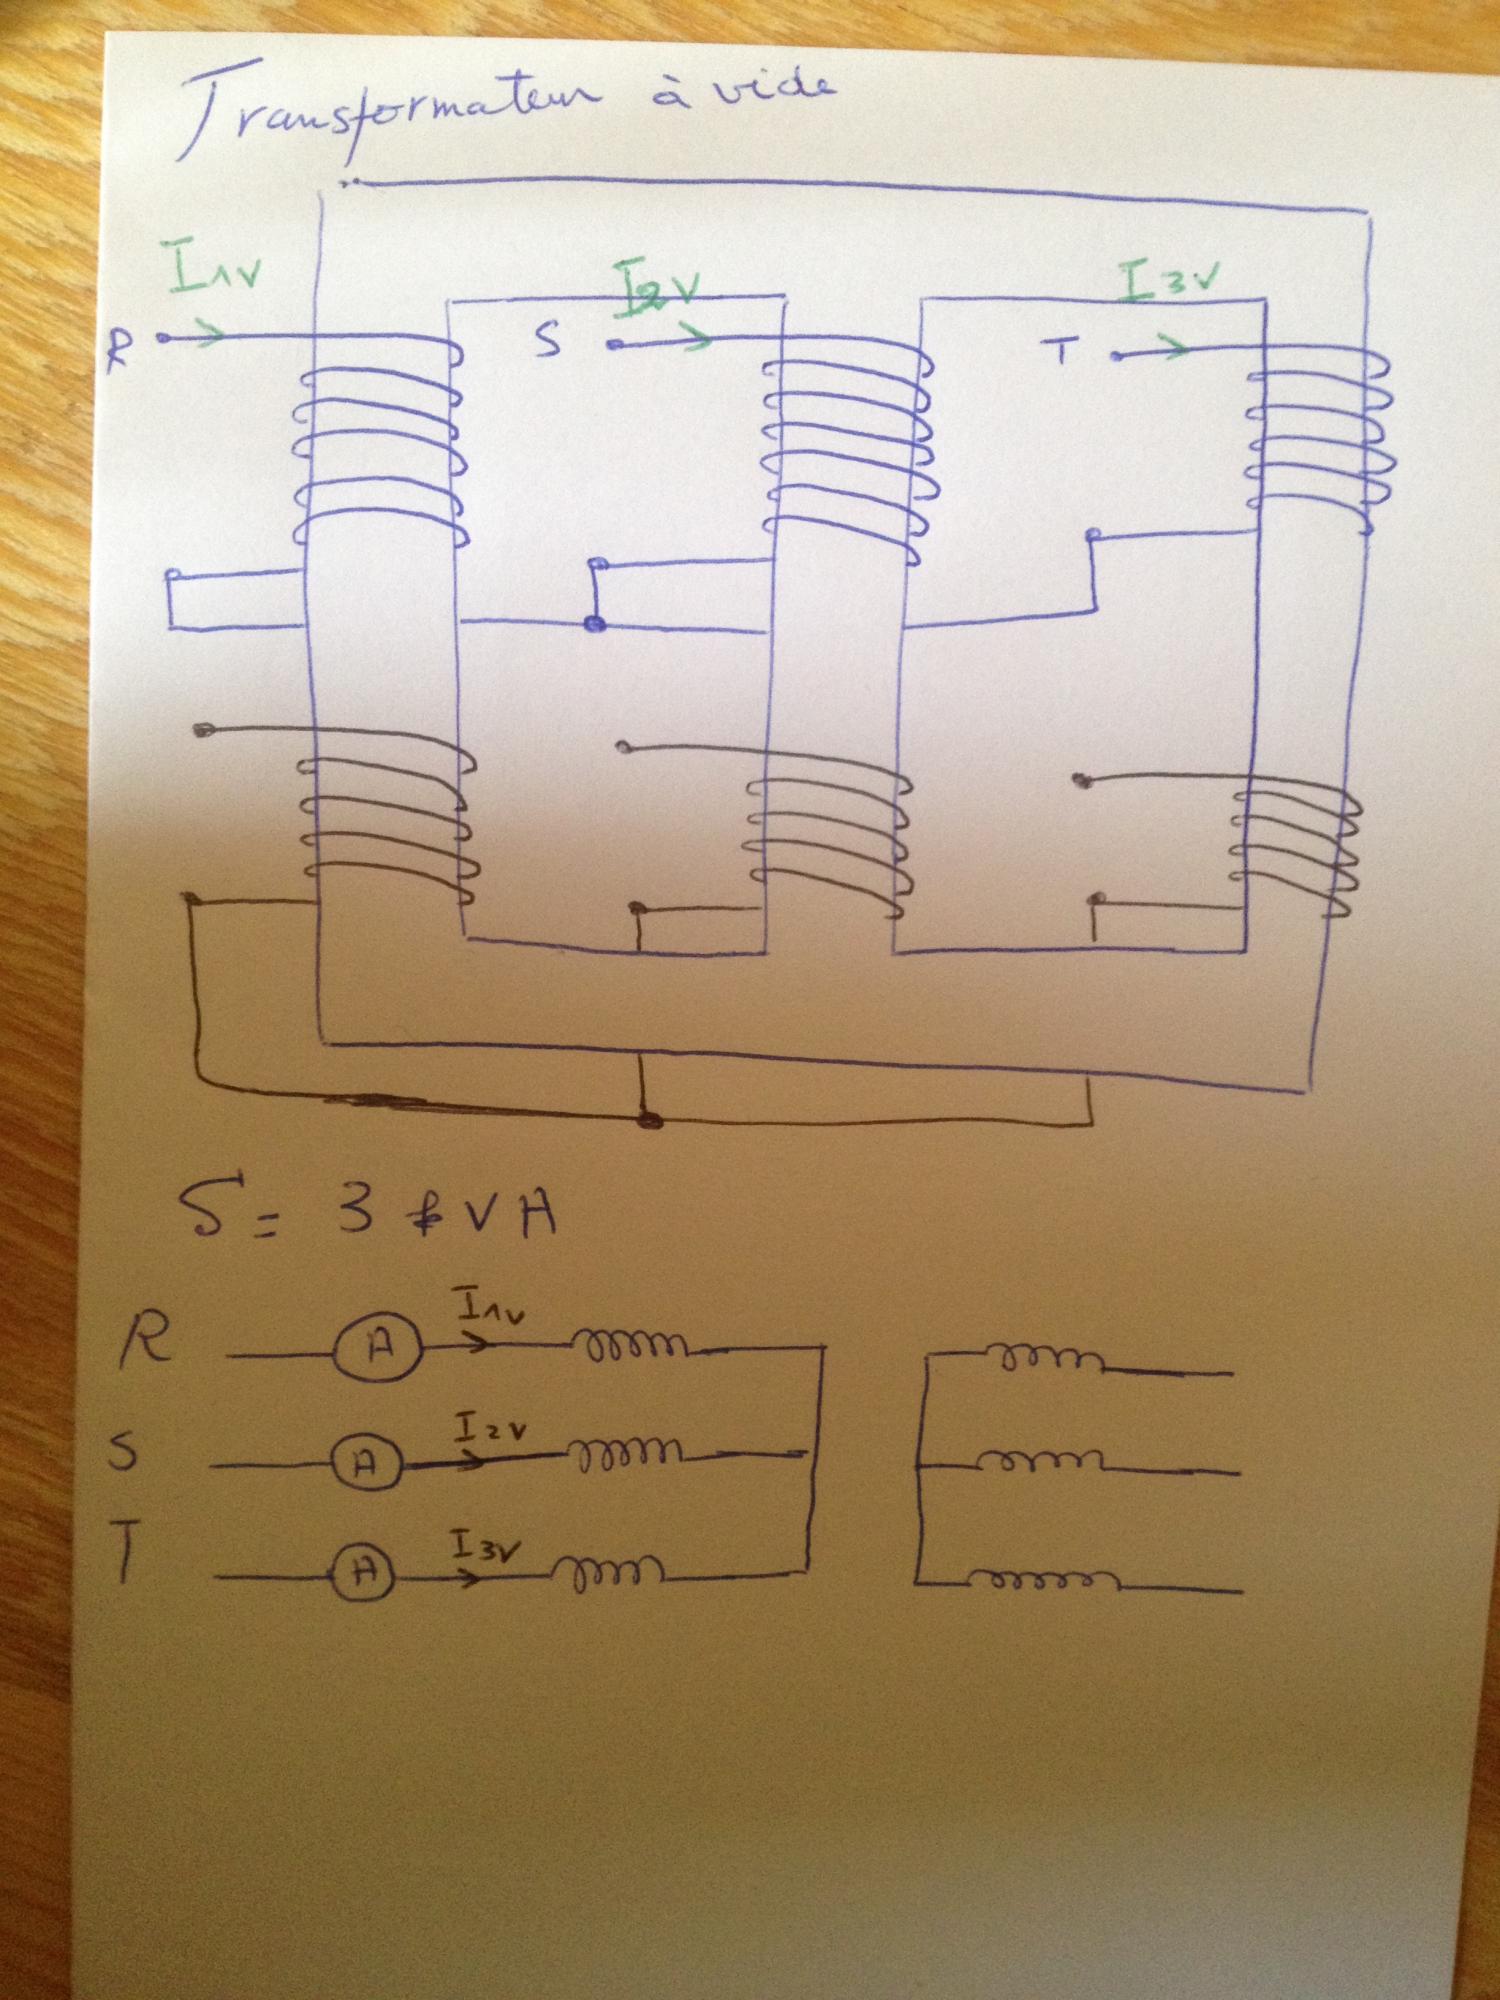 Transformateur à vide
I1V I2V I3V
R S T
S = 3 kVA
R A I1V
S A I2V
T A I3V